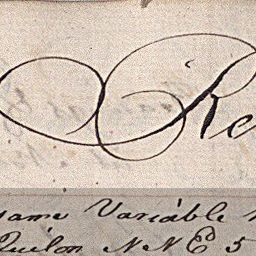 Re
same Variable
Quilon NNE 5